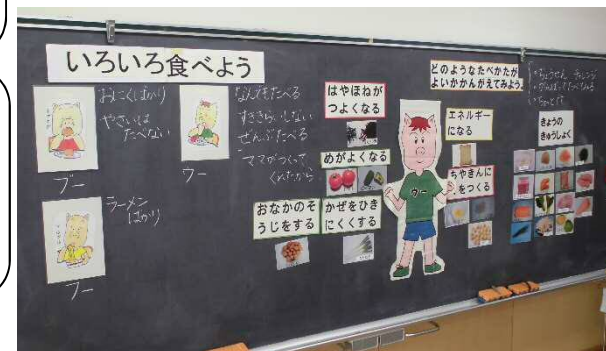 いろいろ食べよう
おにくばかり
やさいは
たべない
ブー
なんでもたべる
すききらいしない
ぜんぶたべる
ママがつくって
くれたから
ウー
ラーメン
ばかり
フー
はやほねが
つよくなる
めがよくなる
おなかのそ
うじをする
かぜをひき
にくくする
どのようなたべかたが
よいかかんがえてみよう
エネルギー
になる
ちやきんに
くをつくる
ウー
きょうの
きゅうしょく